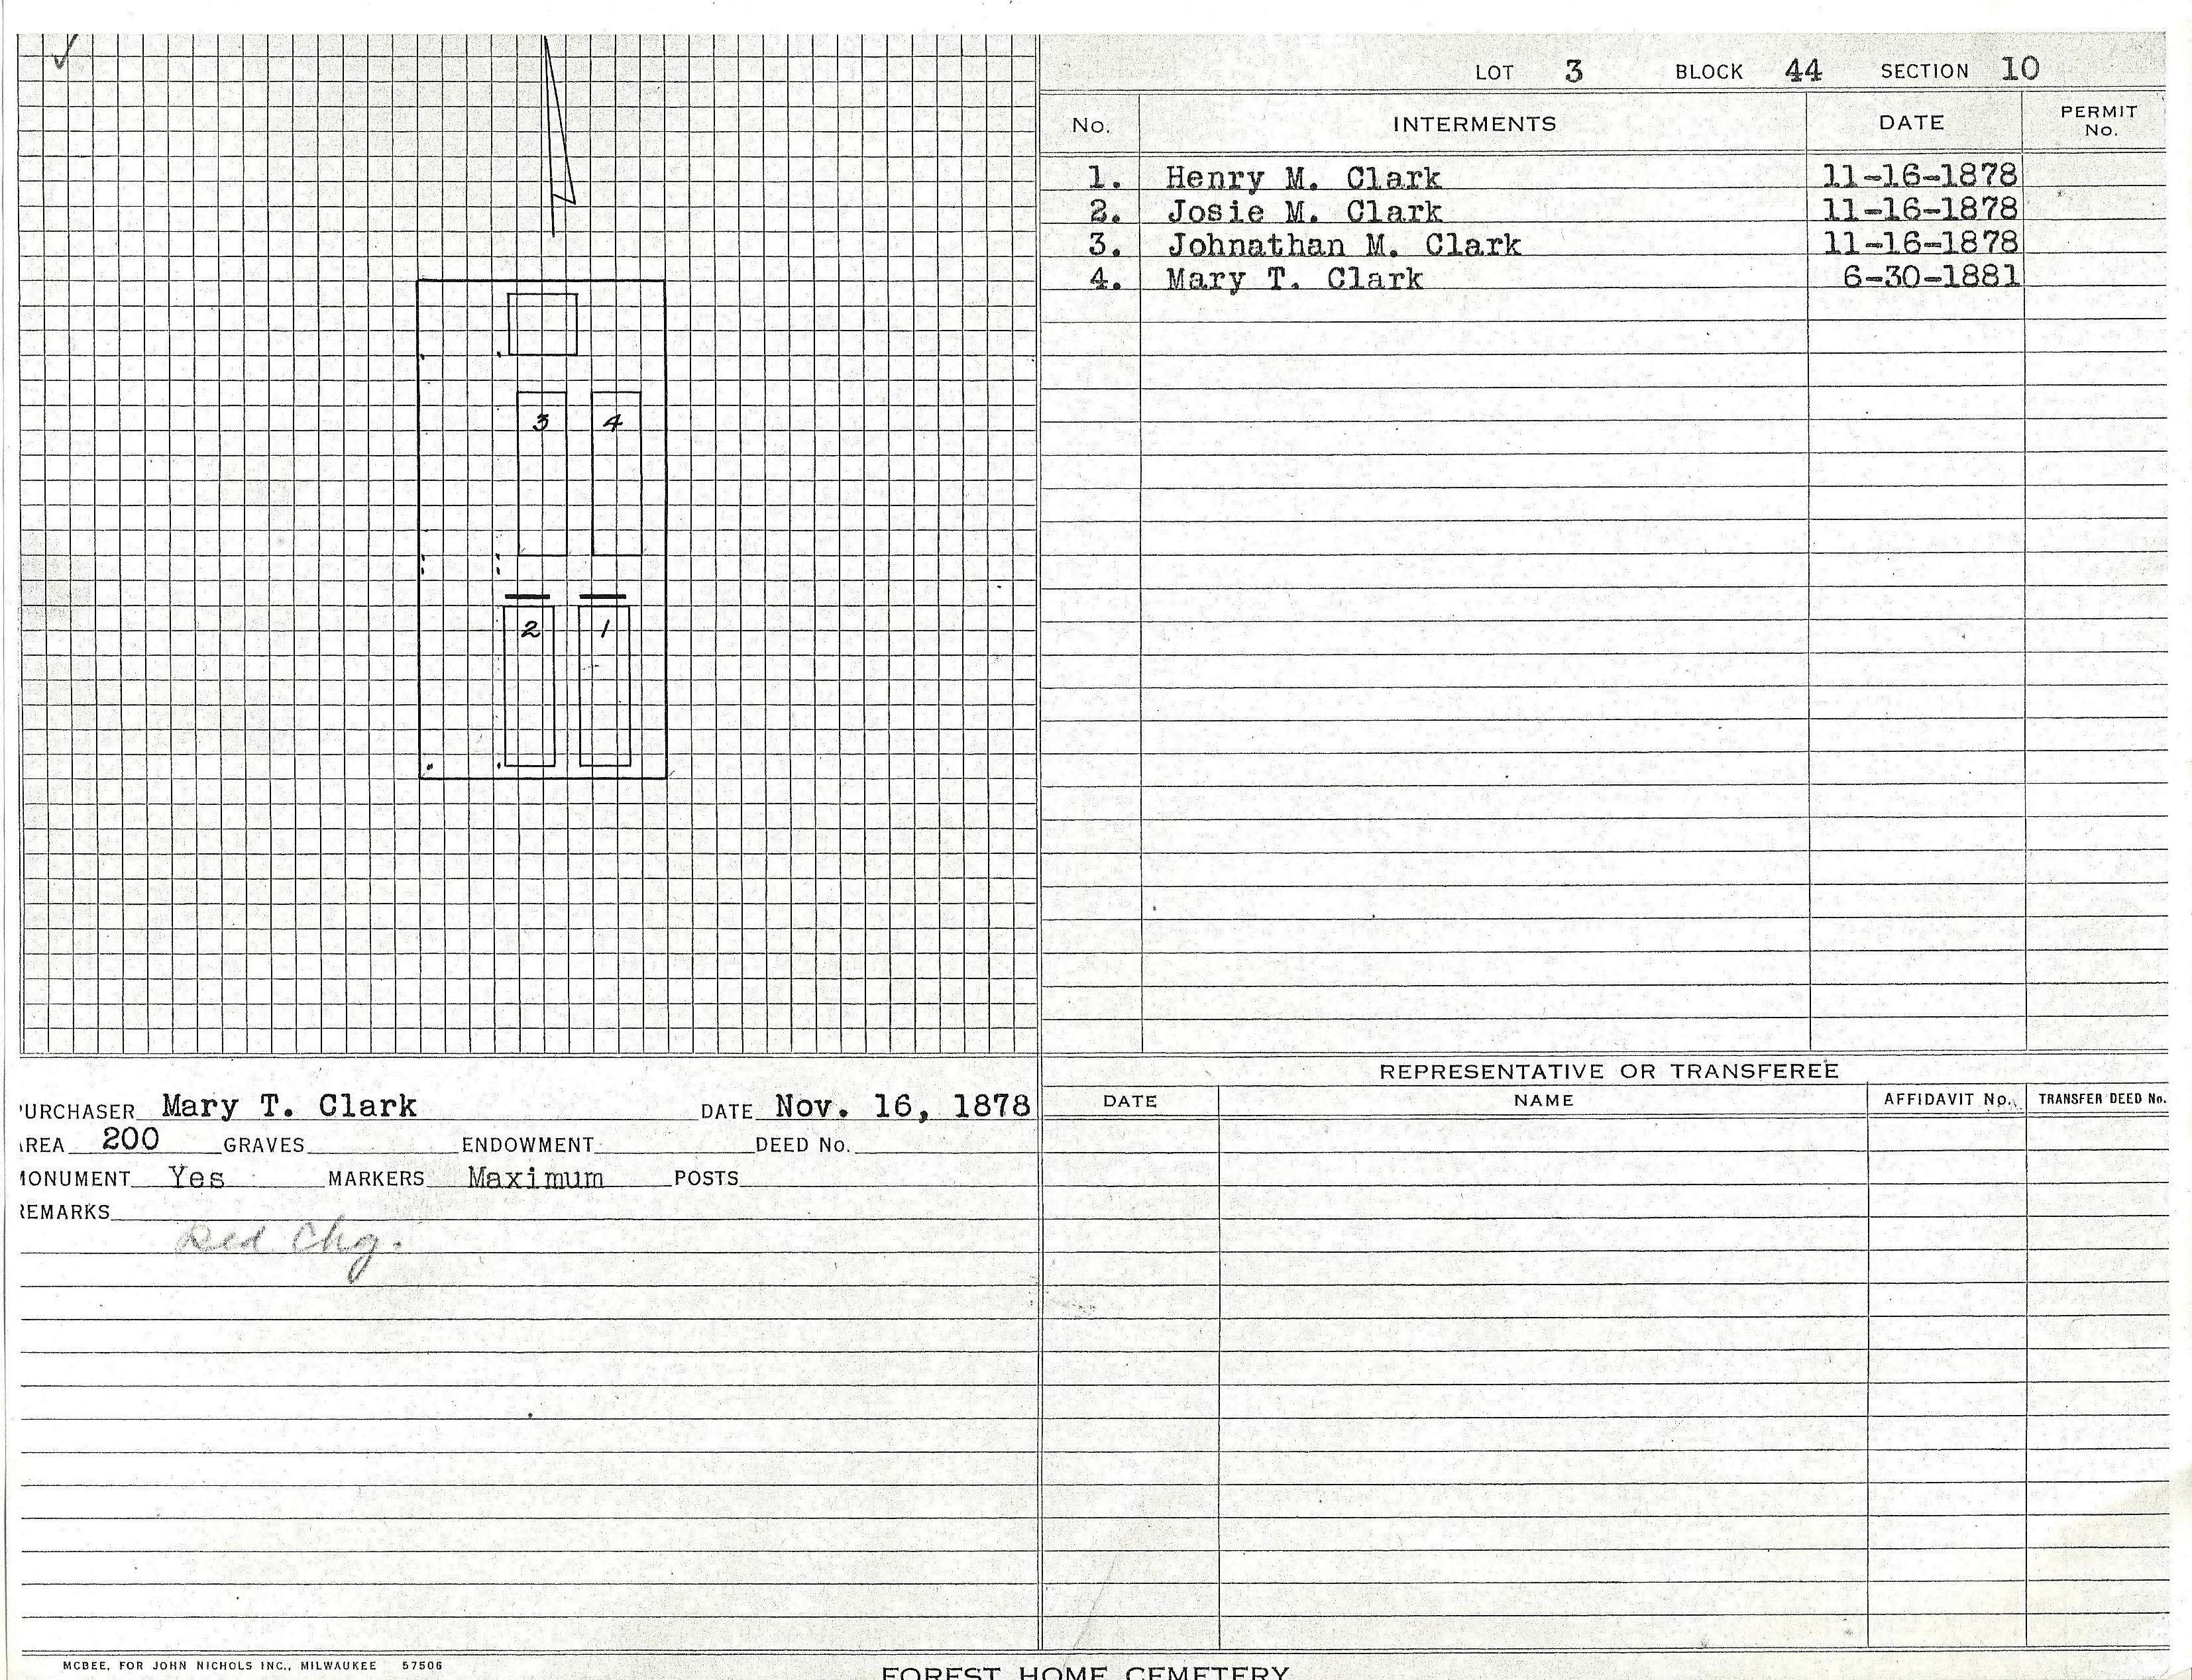 LOT 3 BLOCK 44 SECTION 10
No. INTERMENTS DATE PERMIT No.
1. Henry M. Clark 11-16-1878
2. Josie M. Clark 11-16-1878
3. Johnathan M. Clark 11-16-1878
4. Mary T. Clark 6-30-1881
3 4
2 1
URCHASER Mary T. Clark DATE Nov. 16, 1878
AREA 200 GRAVES ENDOWMENT DEED No.
MONUMENT Yes MARKERS Maximum POSTS
REMARKS
Chg.
REPRESENTATIVE OR TRANSFEREE
DATE NAME AFFIDAVIT No. TRANSFER DEED No.
MCBEE, FOR JOHN NICHOLS INC., MILWAUKEE 57506
FOREST HOME CEMETERY